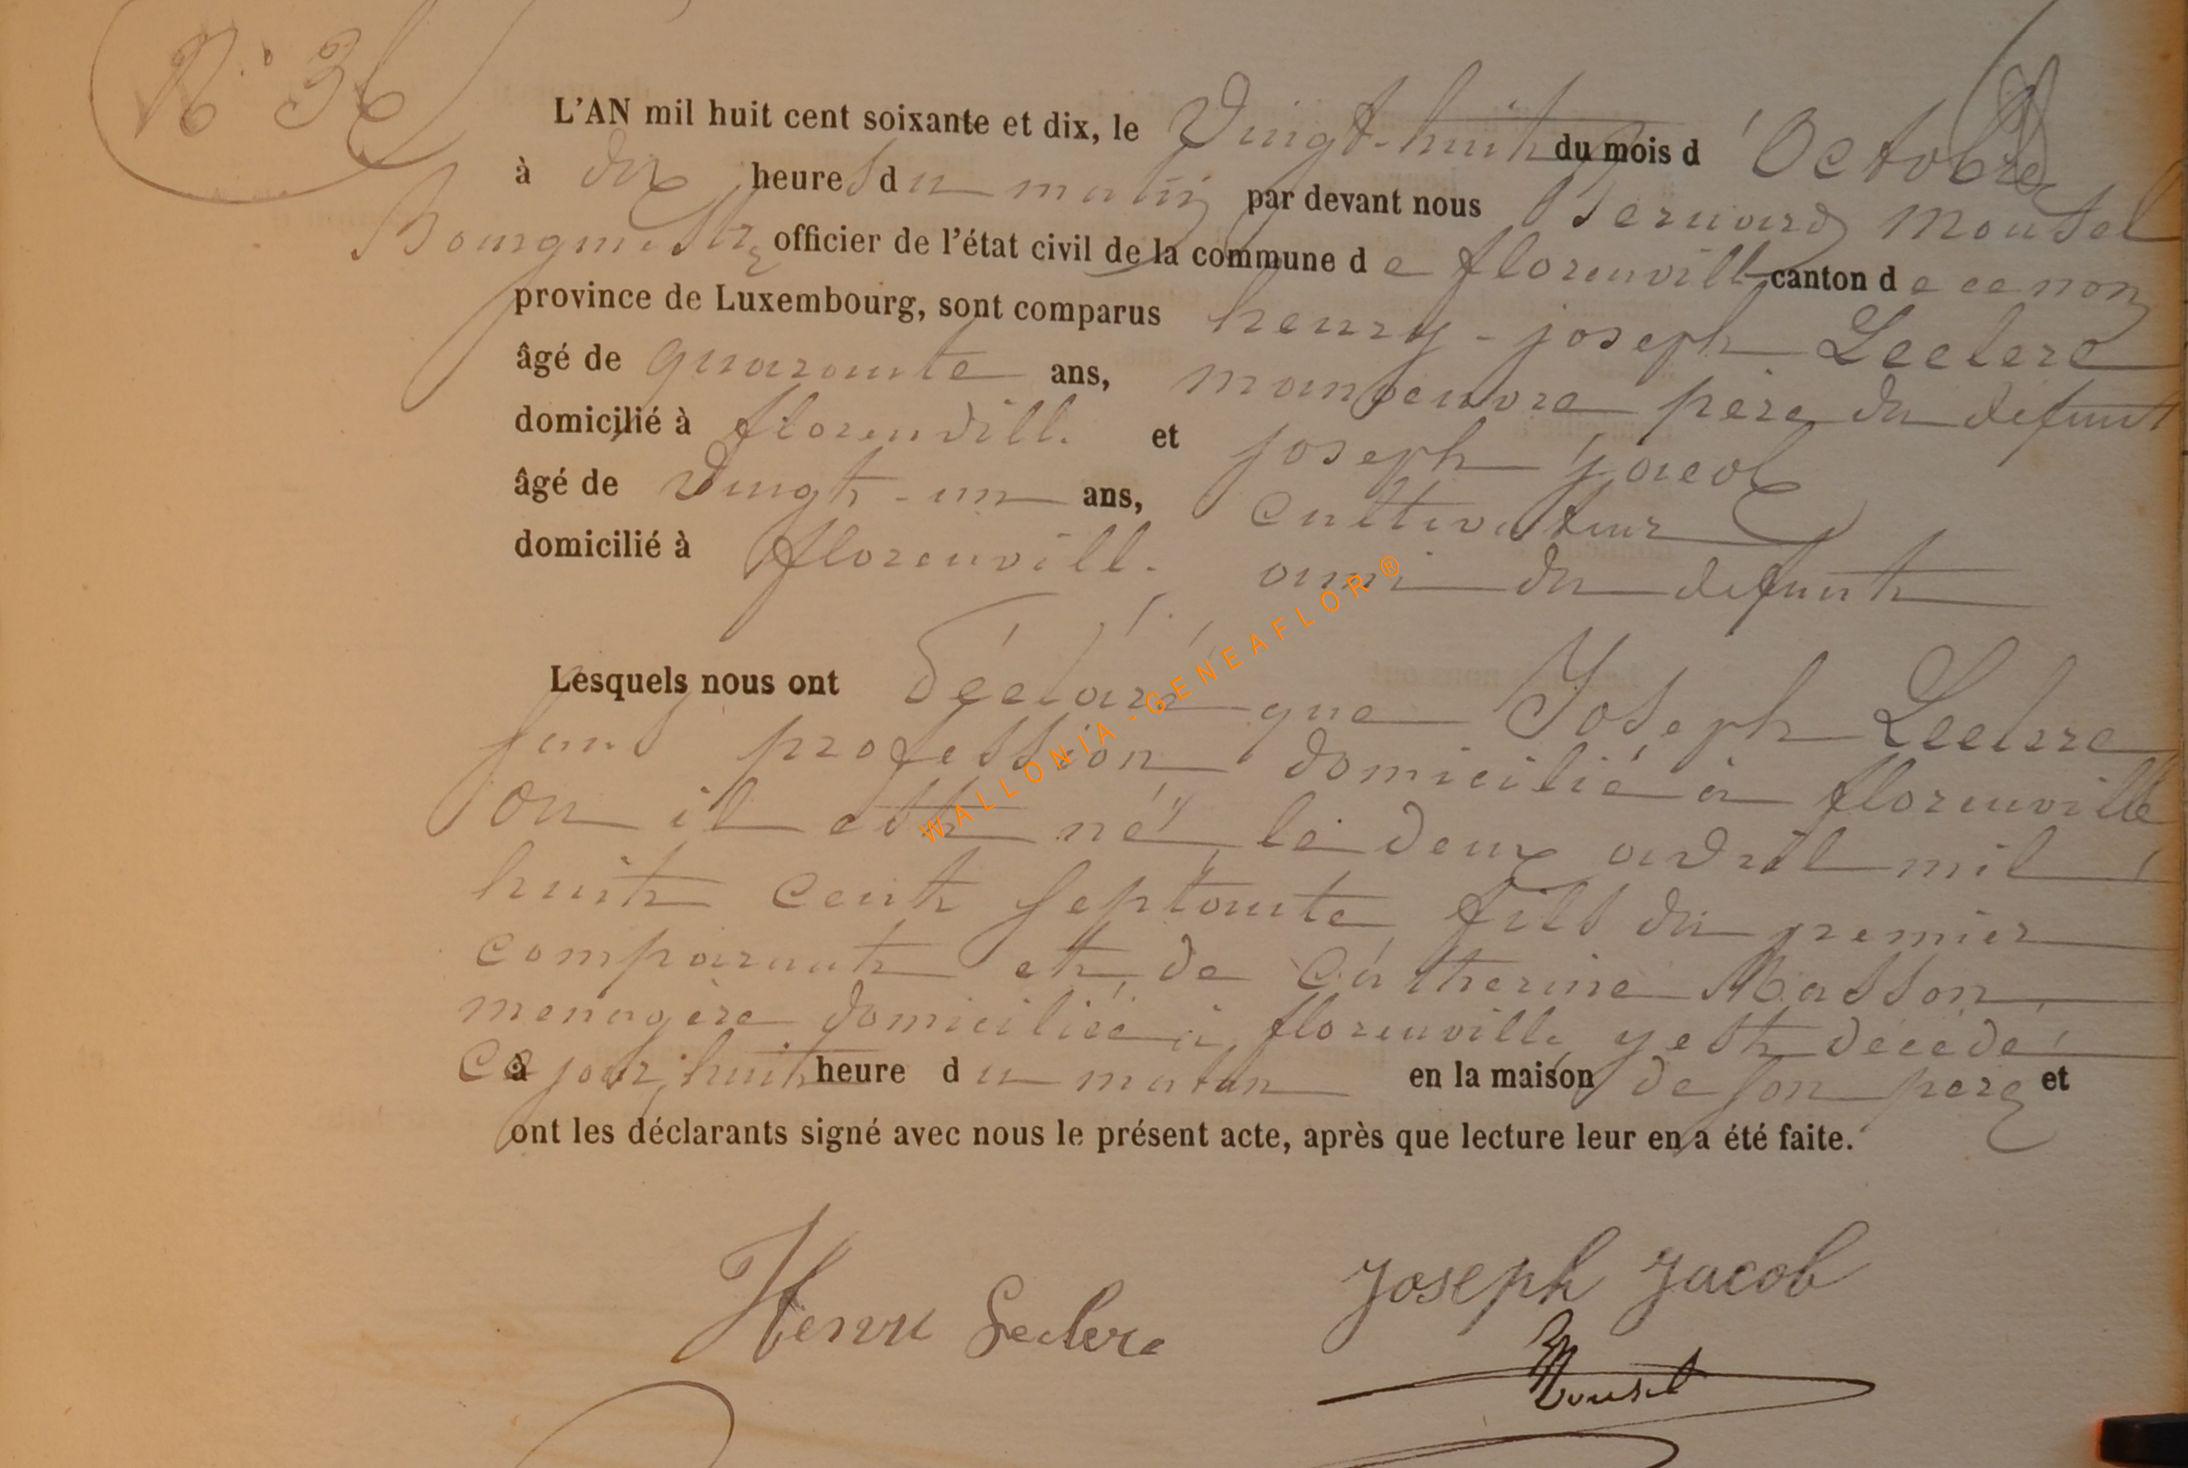 N° 36
L'AN mil huit cent soixante et dix, le Vingt-huit du mois d'Octobre
à dix heures du matin par devant nous Bernard Mousel
Bourgmestre officier de l'état civil de la commune de florenville canton de ce nom
province de Luxembourg, sont comparus henry-joseph Leclere
âgé de quarante ans, manoeuvre père du défunt
domicilié à florenville et joseph jacob
âgé de Vingt-un ans, cultivateur
domicilié à florenville. ami du defunt
Lesquels nous ont déclaré que Joseph Leclere
sans profession domicilié à florenville
ou il est né le deux avril mil
huit cent septante fils du premier
comparant et de Catherine Masson
menagère domiciliée à florenville y est décédé
Ce jour, à huit heure du matin en la maison de son père et
ont les déclarants signé avec nous le présent acte, après que lecture leur en a été faite.
Henri Leclere
Joseph Jacob
Mousel
WALLONIA-GENEAFLOR ®